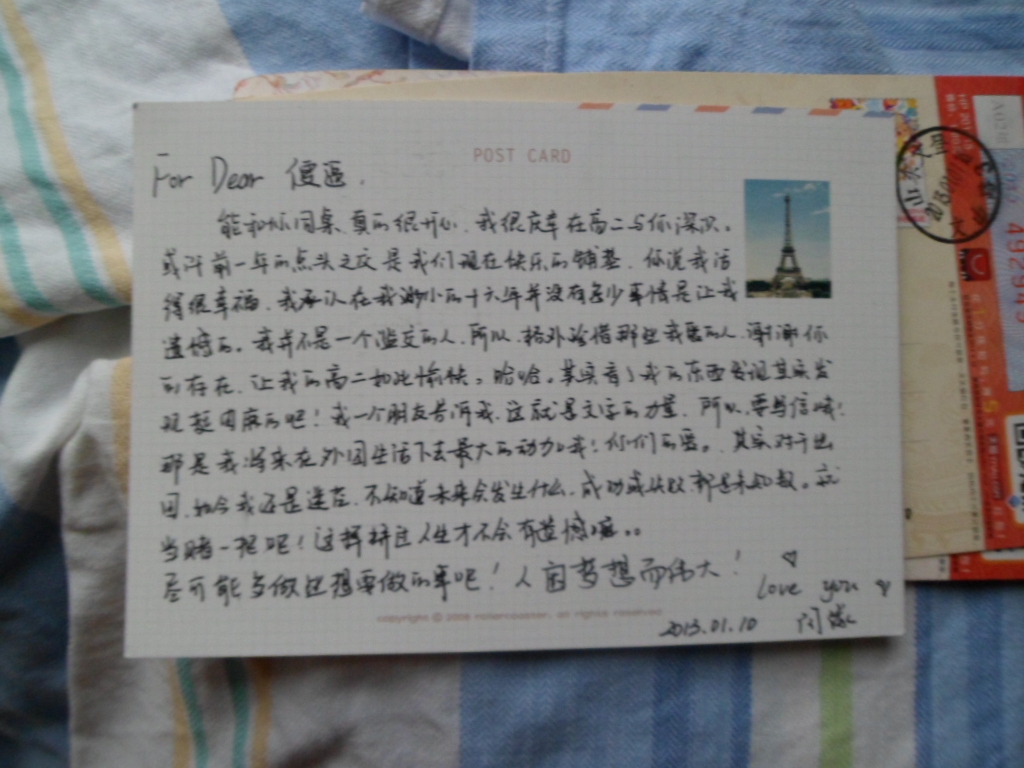 POST CARD
For Dear
能和你同桌,真的很开心,我很庆幸在高二与你深识。
或许前一年的点头之交是我们现在快乐的铺垫,你说我活
得很幸福,我承认在我渺小的十六年并没有多少事情是让我
遗憾的。我并不是一个滥交的人,所以,格外珍惜那些我爱的人,谢谢你
的存在,让我的高二如此愉快。哈哈。其实看了我的东西发现其实发
现挺的吧!我一个朋友告诉我,这就是文字的力量,所以,要写信哦!
那是我将来在外国生活下去最大的动力哦!你们的爱。其实对于出
国,如今我还是迷茫,不知道未来会发生什么,成功或失败都是未知数。就
当赌一把吧!这样拼过人生才不会有遗憾嘛。。
尽可能多做些想要做的事吧!人因梦想而伟大!
love you
2013.01.10
copyright © 2008 rollercoaster. all rights reserved
492943